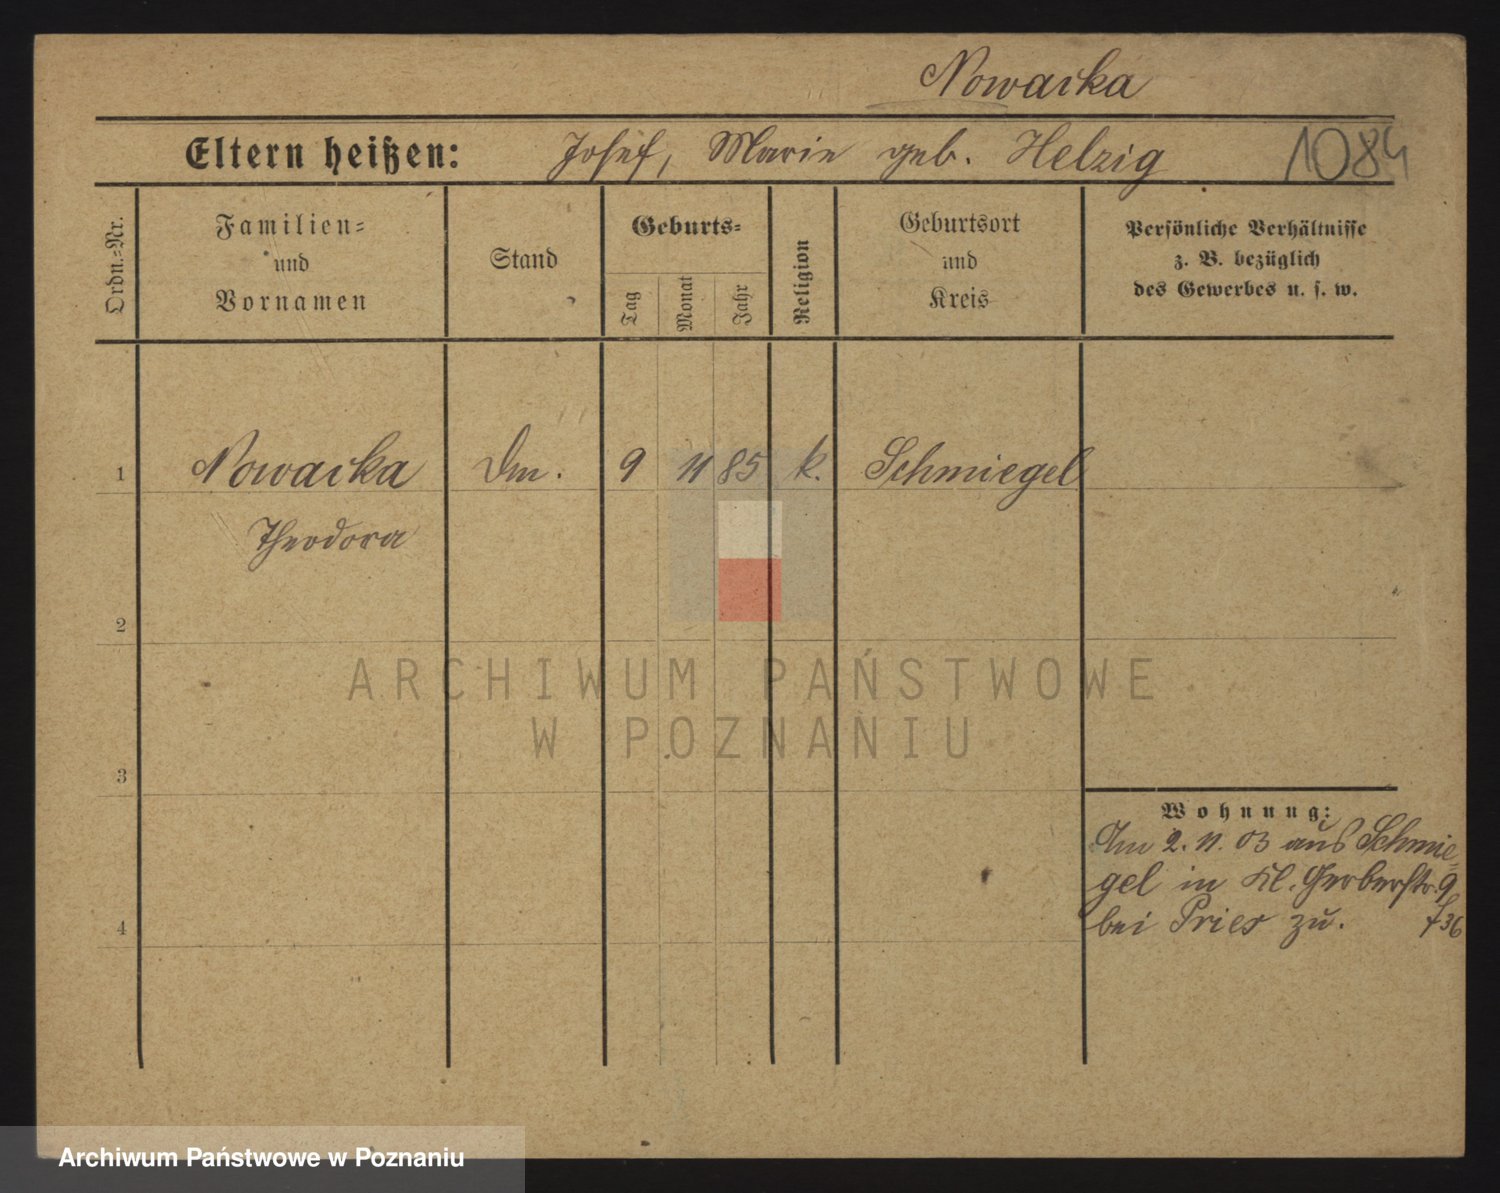 Nowacka
Eltern heißen: Josef, Marie geb. Helzig 1084
Ordn.=Nr.
Familien=
und
Vornamen
Stand
Geburts=
Tag
Monat
Jahr
Religion
Geburtsort
und
Kreis
Persönliche Verhältnisse
z. B. bezüglich
des Gewerbes u. s. w.
1 Nowacka Dm. 9 11 85 k. Schmiegel
Theodora
2
ARCHIWUM PAŃSTWOWE
W POZNANIU
3
Wohnung:
Am 2. 11. 03 aus Schmie-
gel in Kl. Gerberstr. 9
bei Pries zu. f 36
4
Archiwum Państwowe w Poznaniu